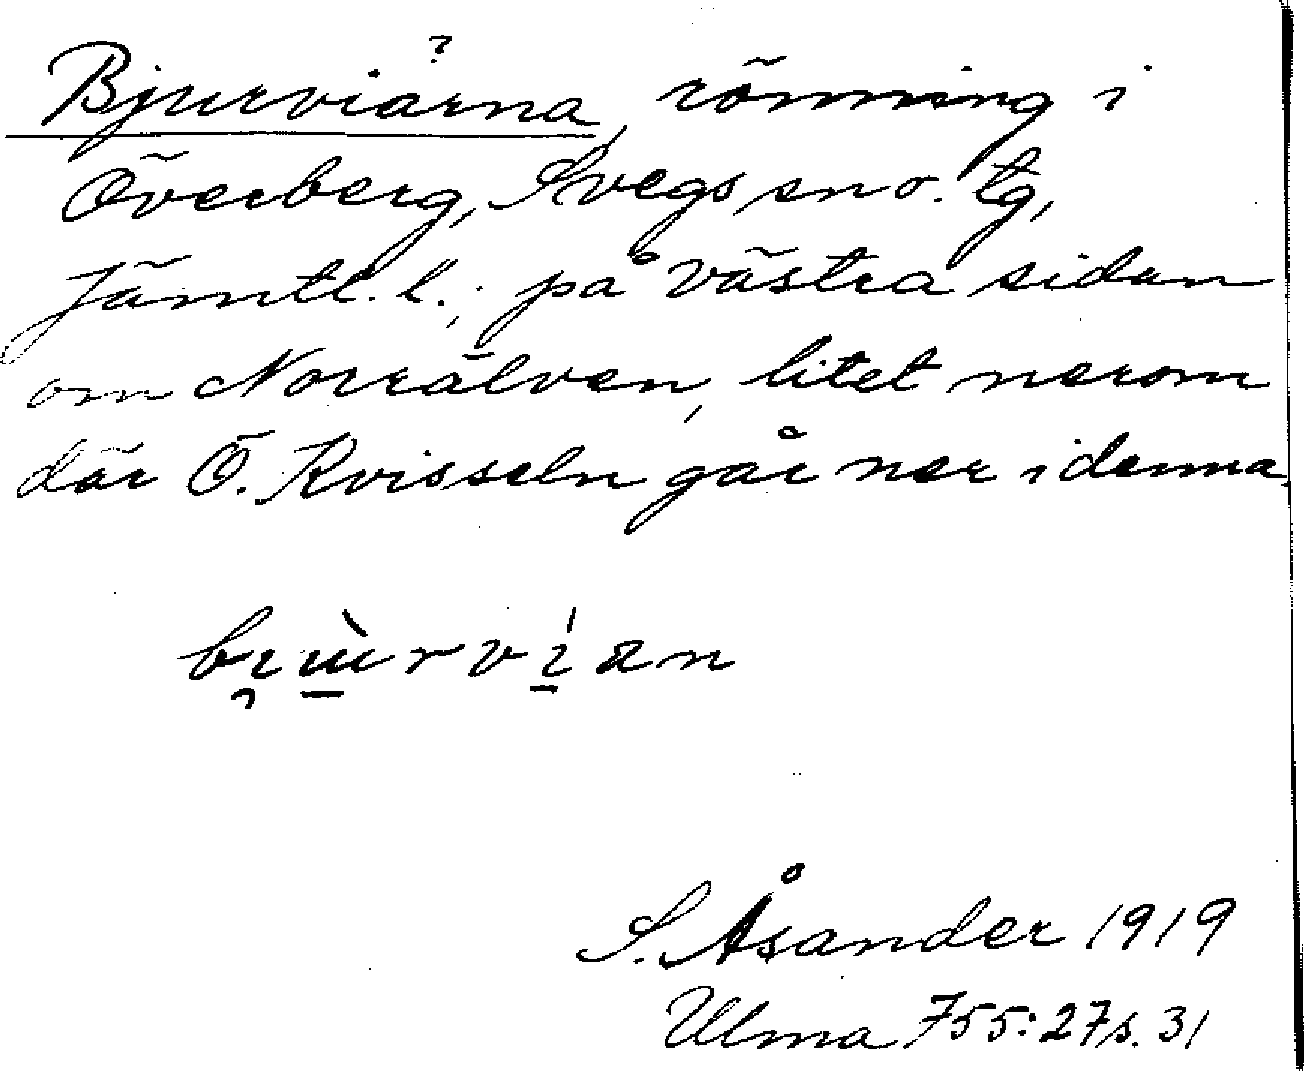 Bjurviarna, rönning i
Överberg, Svegs sn o. tg,
Jämtl. l.; på västra sidan
om Norrälven, litet nerom
där Ö. Kvisseln går ner i denna
S. Åsander 1919
Ulma 755:27 s. 31